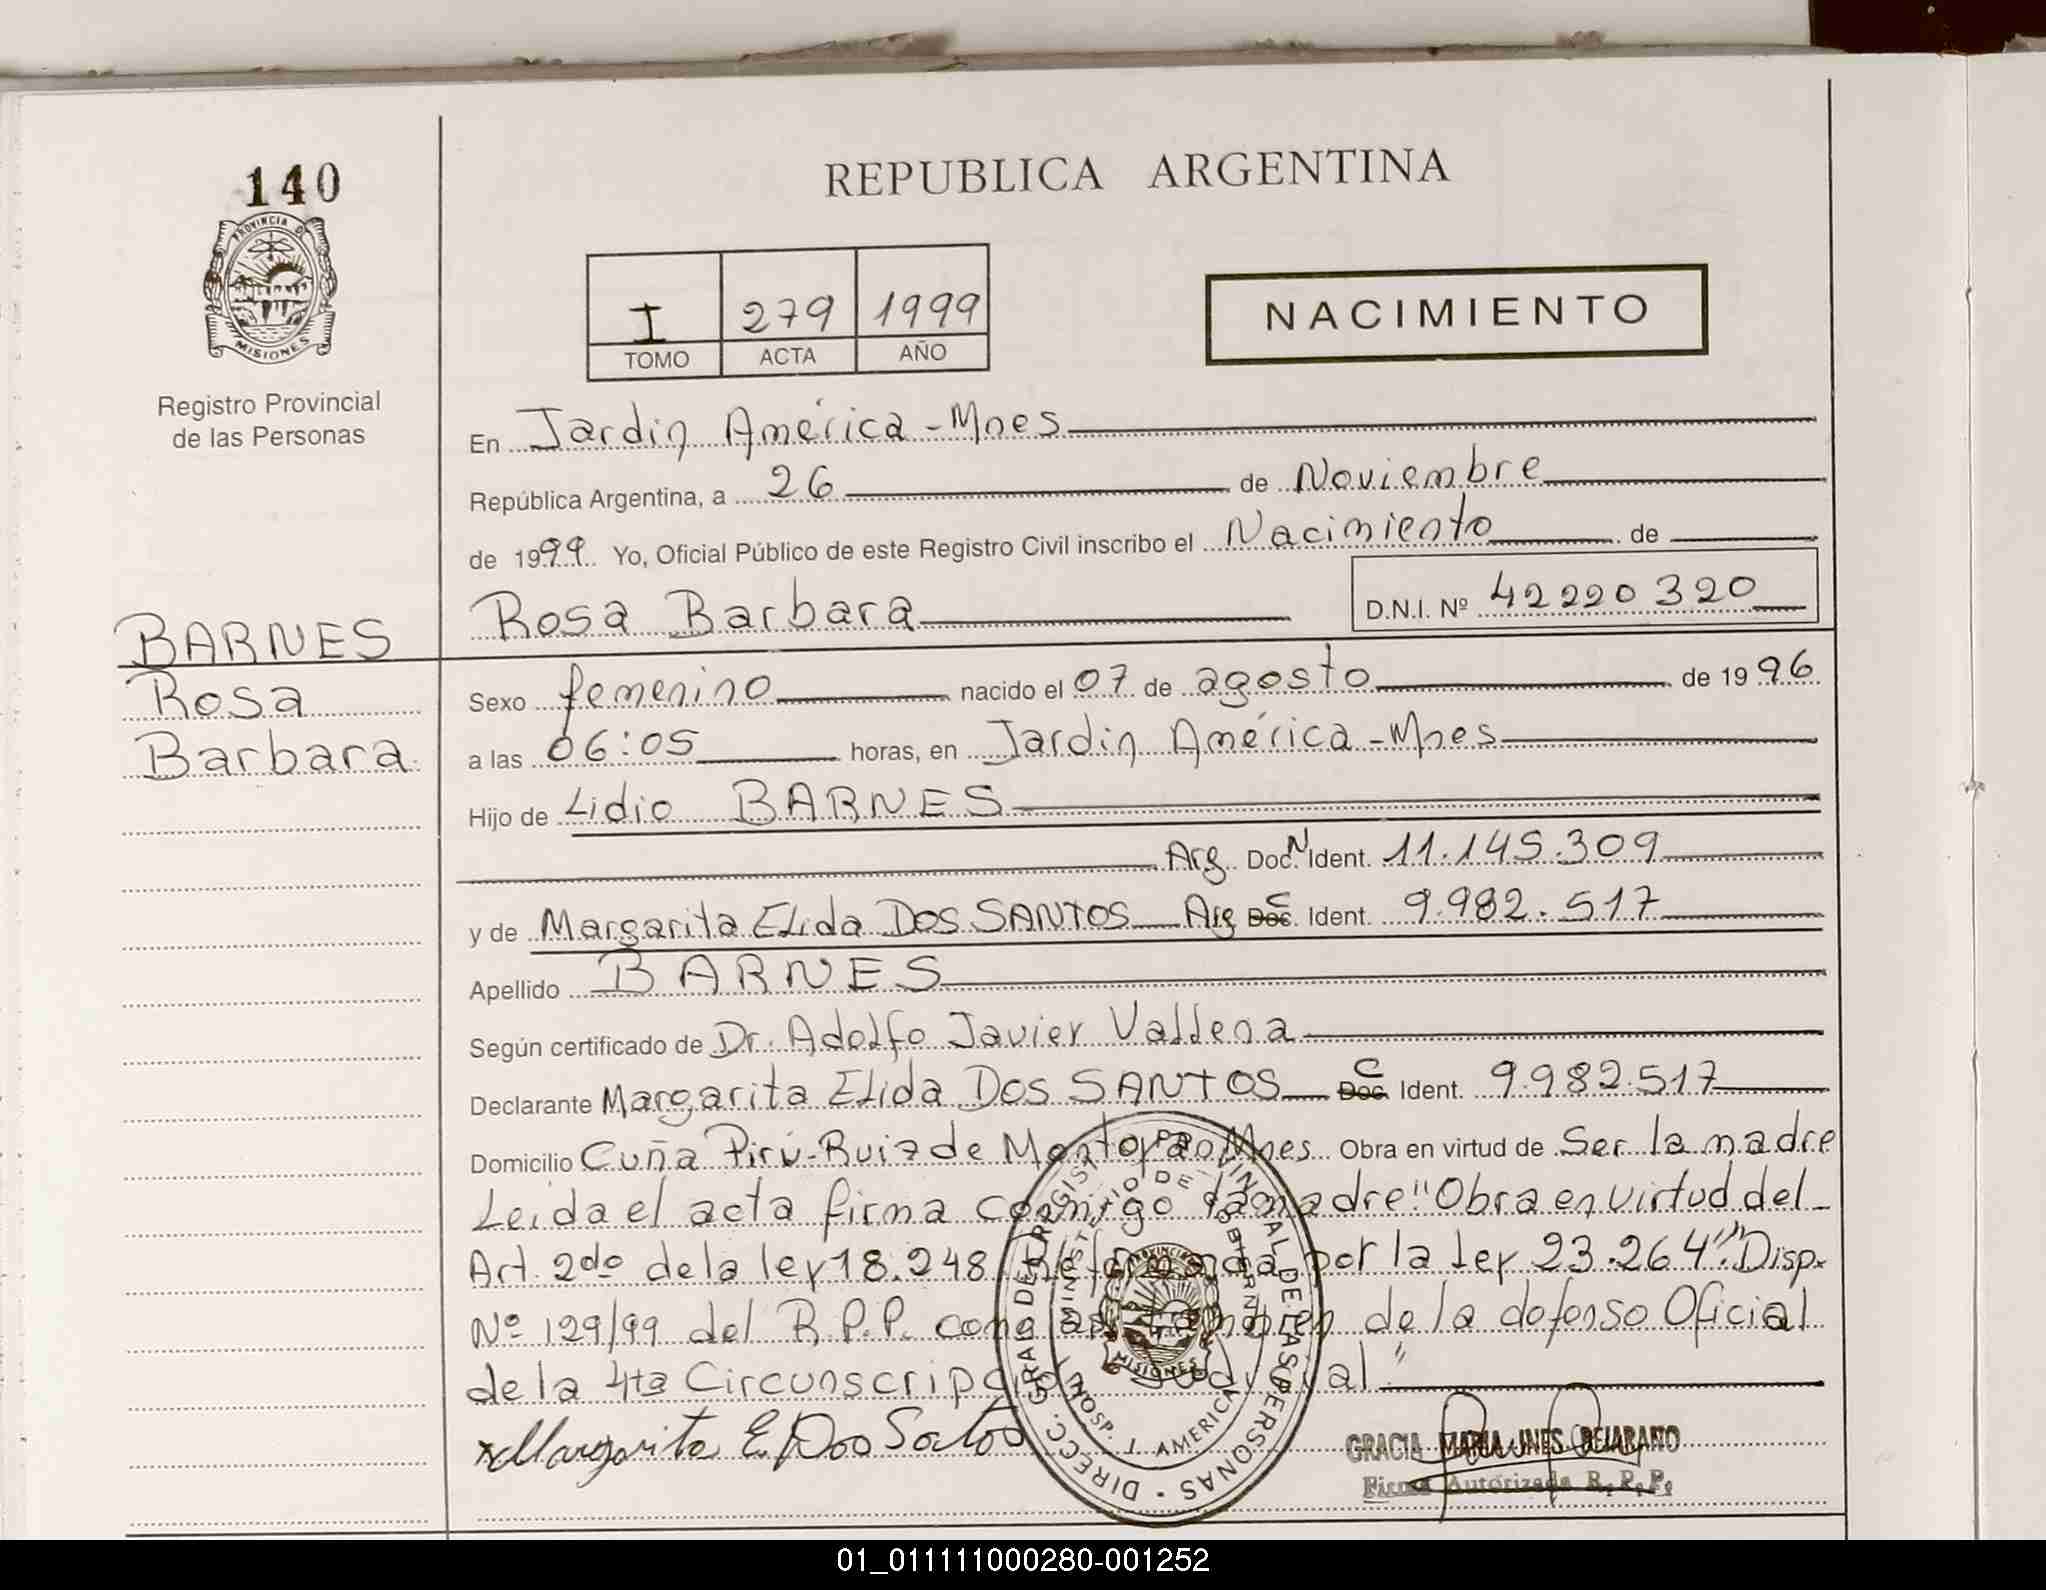 140
PROVINCIA D
MISIONES
Registro Provincial
de las Personas
REPUBLICA ARGENTINA
I 279 1999
TOMO ACTA AÑO
NACIMIENTO
En Jardin América - Mnes
República Argentina, a 26 de Noviembre
de 1999 Yo, Oficial Público de este Registro Civil inscribo el Nacimiento de
Rosa Barbara D.N.I. Nº 42220320
BARNES
Rosa
Barbara
Sexo femenino nacido el 07 de agosto de 1996
a las 06:05 horas, en Jardin América - Mnes
Hijo de Lidio BARNES
Arg. Doc. N Ident. 11.145.309
y de Margarita Elida DOS SANTOS Arg Doc. C Ident. 9.982.517
Apellido BARNES
Según certificado de Dr. Adolfo Javier
Declarante Margarita Elida DOS SANTOS Doc. C Ident. 9.982.517
Domicilio Cuña Pirú - Ruiz de Montoya Mnes Obra en virtud de Ser la madre
Leida el acta firma conmigo la madre "Obra en virtud del
Art. 2do de la ley 18.248 por la ley 23.264". Disp.
Nº 129/99 del R.P.P. de la defenso Oficial
de la 4ta Circunscripción Judicial"
Margarita E. Dos Santos
DIRECC. GRAL DEL REGISTRO PROVINCIAL DE LAS PERSONAS
MINISTERIO DE GOBIERNO
MISIONES
HOSP. J. AMERICA
GRACIA MARIA INES BEJARANO
Firma Autorizada R. P. P.
01_011111000280-001252